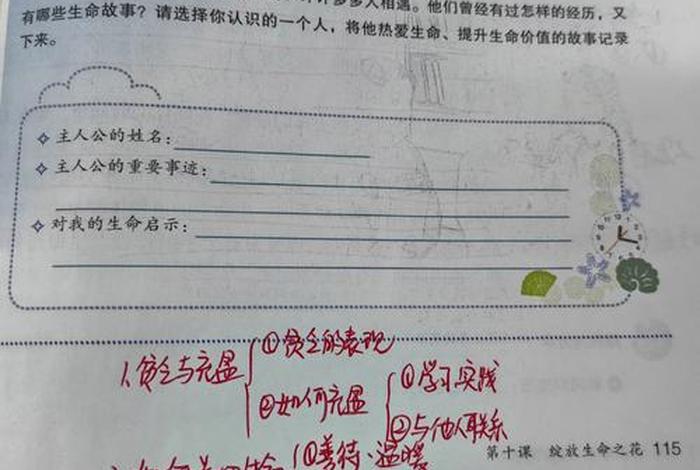 多多人相遇。他们曾经有过怎样的经历，又
有哪些生命故事？请选择你认识的一个人，将他热爱生命、提升生命价值的故事记录
下来。
主人公的姓名：
主人公的重要事迹：
对我的生命启示：
①贫乏的表现
1、贫乏与充盈
②如何充盈
①学习、实践
②与他人联系
①善待·温暖
第十课 绽放生命之花 115